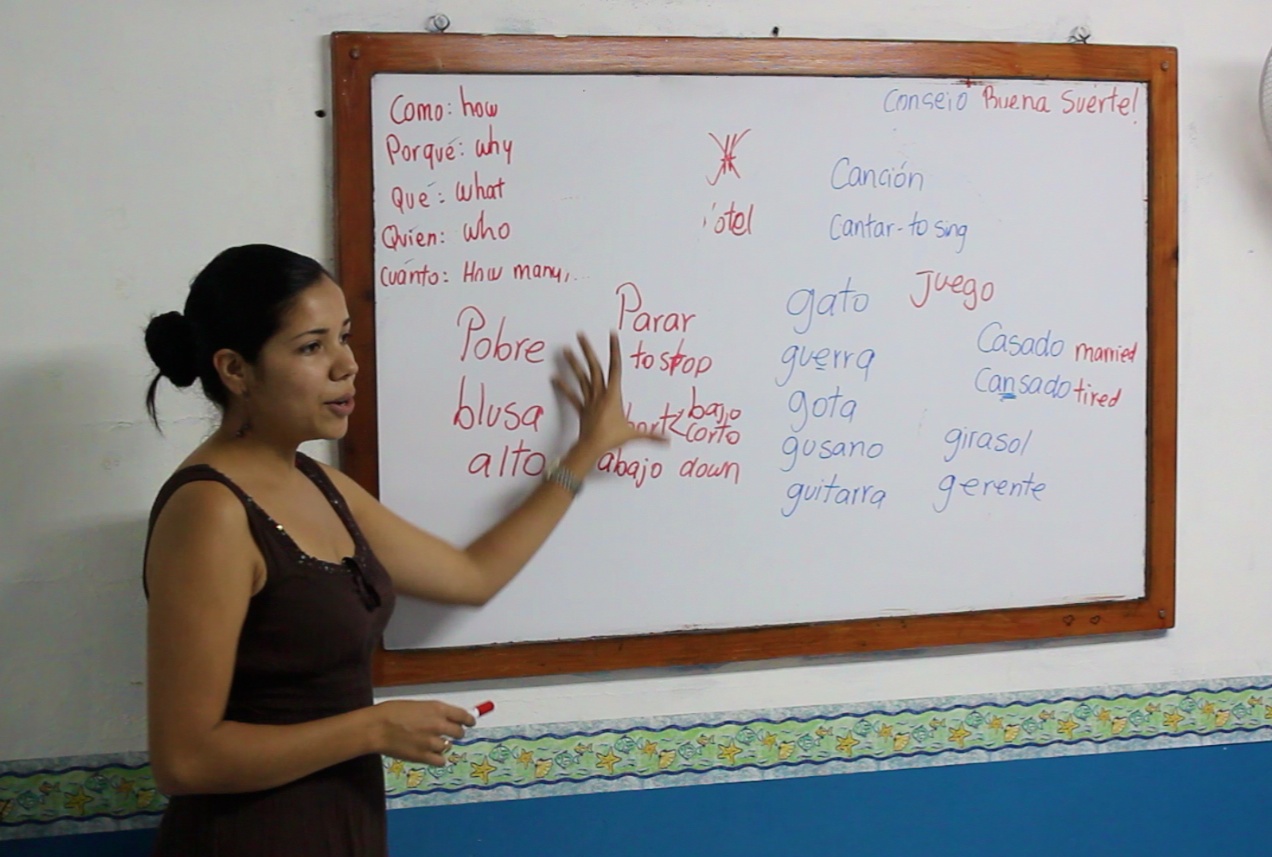 Como: how
Porqué: why
Qué: what
Quien: who
Cuánto: How many,..
Pobre
blusa
alto
Parar
to stop
bajo
corto
abajo down
otel
Consejo Buena Suerte!
Canción
Cantar - to sing
gato
guerra
gota
gusano
guitarra
Juego
Casado married
Cansado tired
girasol
gerente